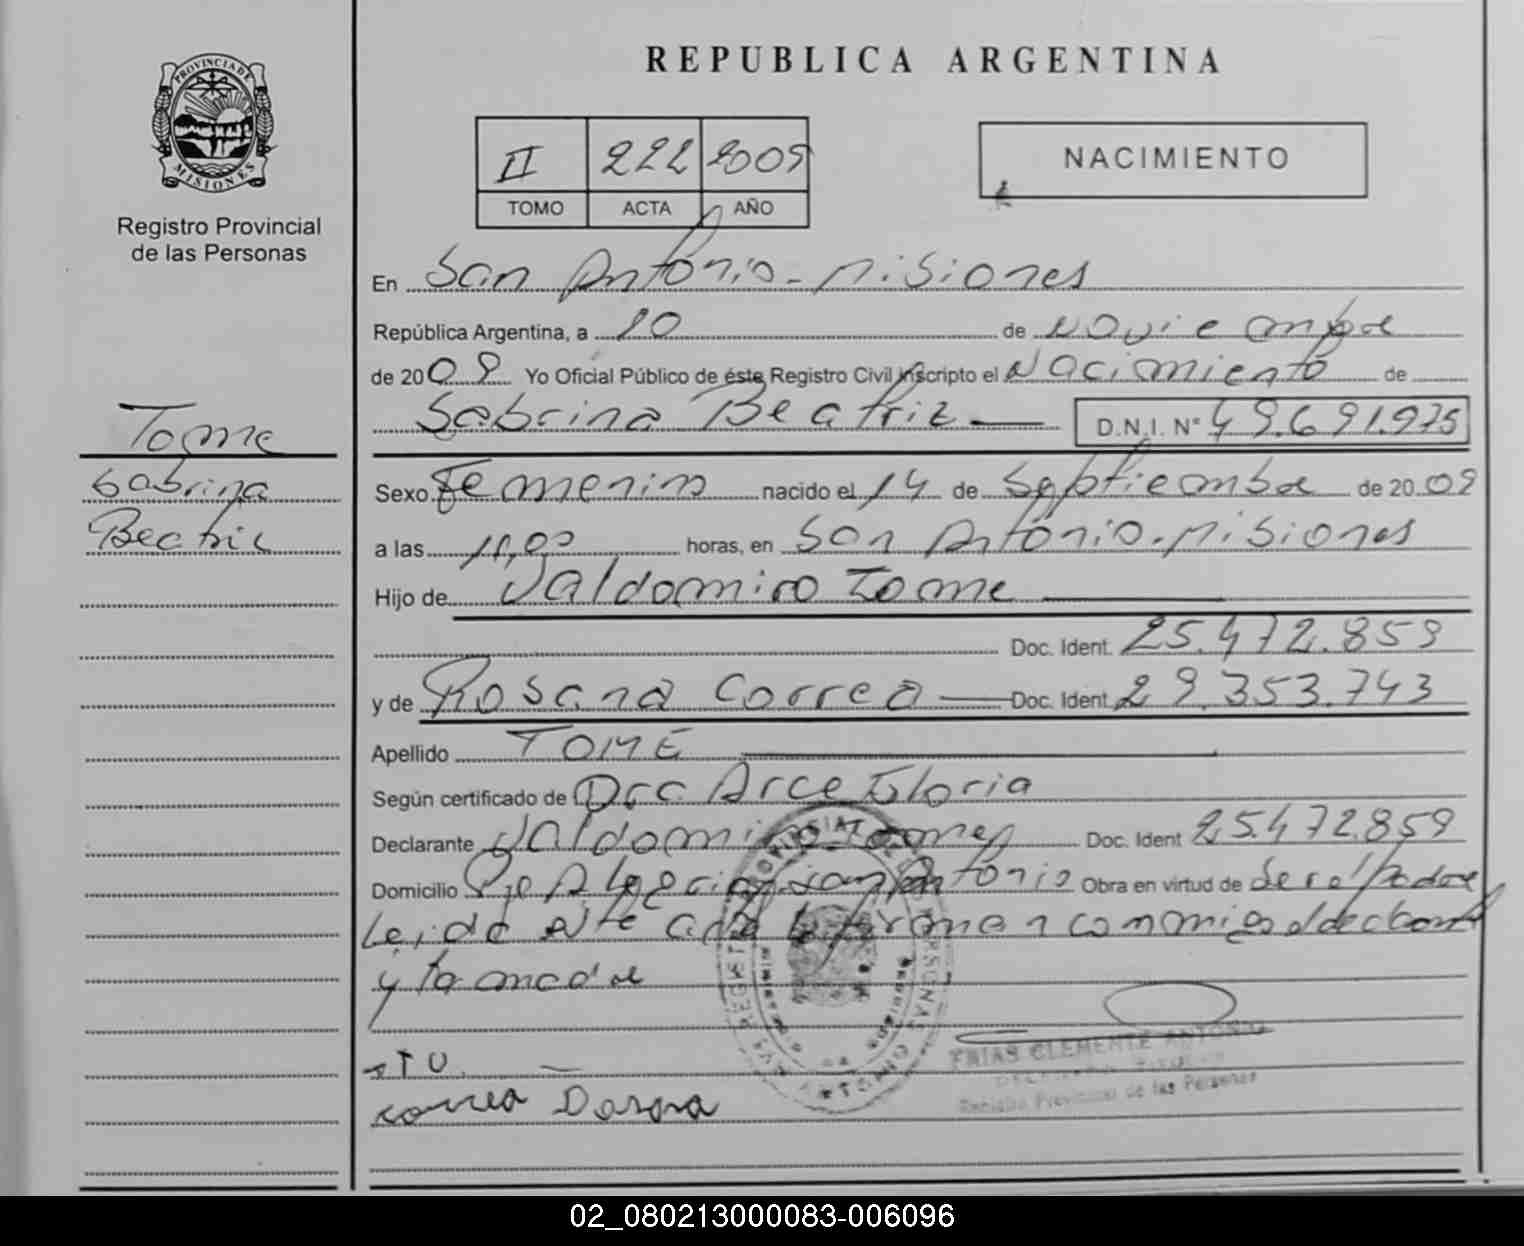 REPUBLICA ARGENTINA
PROVINCIA DE MISIONES
Registro Provincial
de las Personas
II 222 2009
TOMO ACTA AÑO
NACIMIENTO
En San Antonio - Misiones
República Argentina, a 20 de Noviembre
de 2009 Yo Oficial Público de éste Registro Civil inscripto el Nacimiento de
Sabrina Beatriz D.N.I. N° 49.691.975
Tome
Sabrina
Beatriz
Sexo Femenino nacido el 14 de Septiembre de 2009
a las 11,00 horas, en San Antonio - Misiones
Hijo de Valdomiro Tome
Doc. Ident. 25.472.859
y de Rosana Correa Doc. Ident. 29.353.743
Apellido TOME
Según certificado de Dra Arce Gloria
Declarante Valdomiro Tome Doc. Ident 25.472.859
Domicilio Pje Alegria San Antonio Obra en virtud de Ser el padre
Leida este acta la firman conmigo el declarante
y la madre
FRIAS CLEMENTE ANTONIO
Registro Provincial de las Personas
Correa
02_080213000083-006096